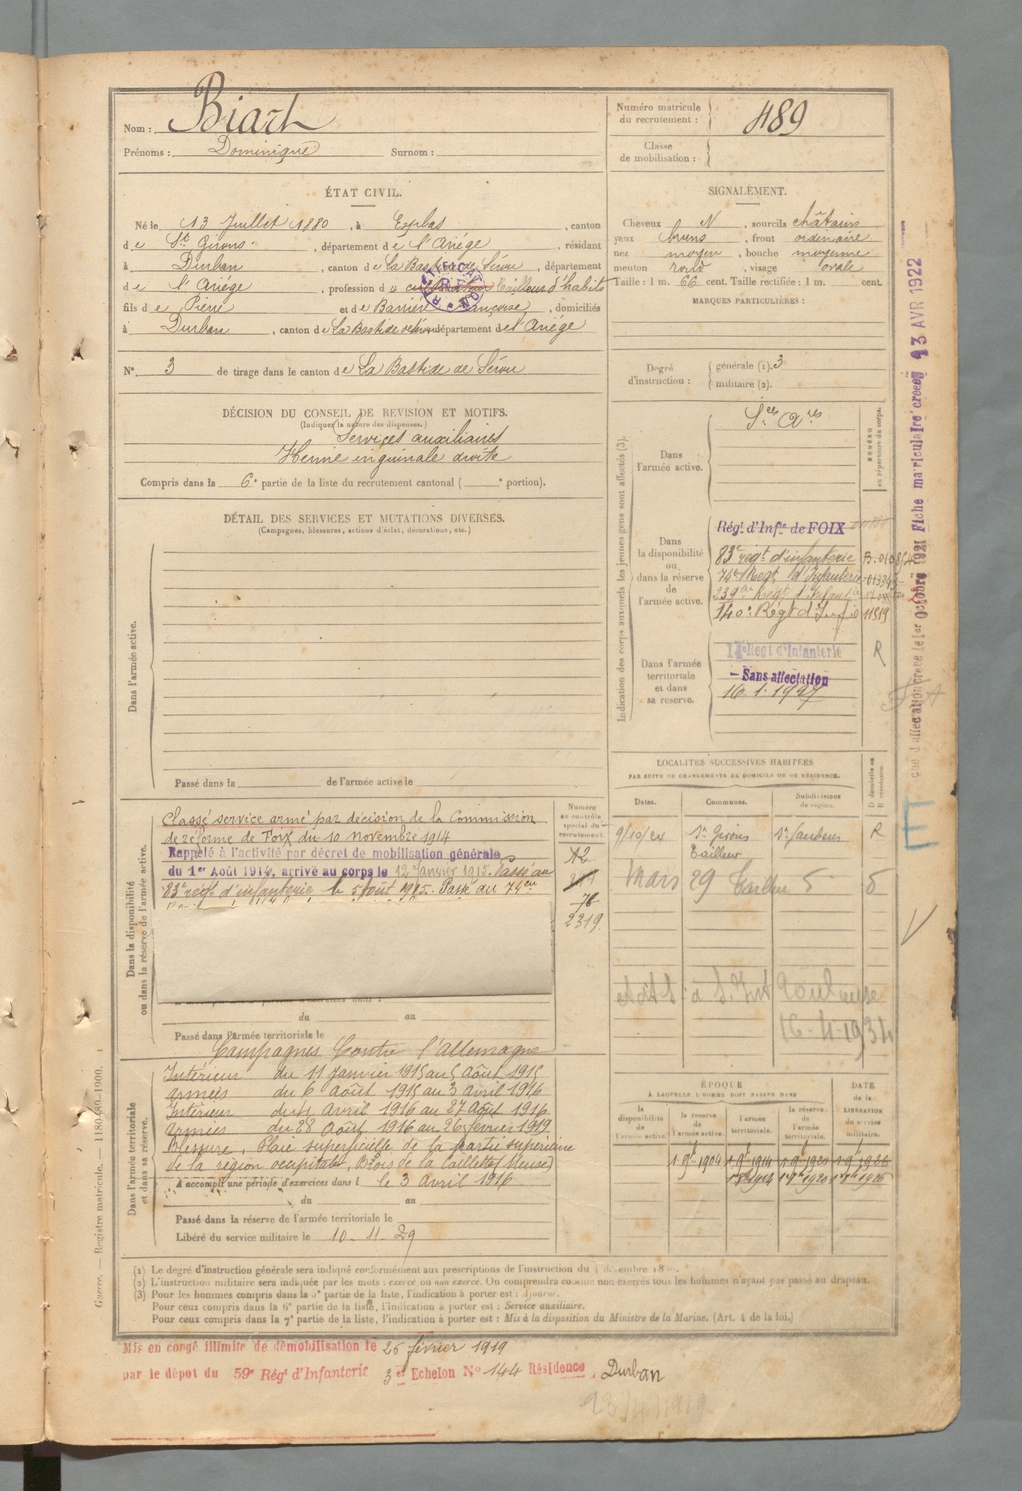 Nom : Biart
Prénoms : Dominique Surnom :
Numéro matricule du recrutement : 489
Classe de mobilisation :
ÉTAT CIVIL.
Né le 13 Juillet 1880, à Esplas, canton
de St Girons, département de l'Ariége, résidant
à Durban, canton de La Bastide de Sérou, département
de l'Ariége, profession de tailleur d'habits
fils de Pierre et de Barrière Françoise, domiciliés
à Durban, canton de La Bastide de Sérou département de l'Ariége
N° 3 de tirage dans le canton de La Bastide de Sérou
SIGNALEMENT.
Cheveux N, sourcils châtains
yeux bruns, front ordinaire
nez moyen, bouche moyenne
menton rond, visage ovale
Taille : 1 m. 66 cent. Taille rectifiée : 1 m. cent.
MARQUES PARTICULIÈRES :
Degré d'instruction : générale (1). 3
militaire (2).
DÉCISION DU CONSEIL DE REVISION ET MOTIFS.
(Indiquer la nature des dispenses.)
Services auxiliaires
Hernie inguinale droite
Compris dans la 6e partie de la liste du recrutement cantonal ( e portion).
DÉTAIL DES SERVICES ET MUTATIONS DIVERSES.
(Campagnes, blessures, actions d'éclat, décorations, etc.)
Dans l'armée active.
Passé dans la de l'armée active le
Indication des corps auxquels les jeunes gens sont affectés (3).
NUMÉRO au répertoire du corps.
Dans l'armée active.
Sces Ares
Dans la disponibilité ou dans la réserve de l'armée active.
Régt d'Infie de FOIX
83e régt d'infanterie
74e Regt d'Infanterie
239me Régt d'Infant
140e Régt d'Infie 11519
Dans l'armée territoriale et dans sa reserve.
Régt d'Infanterie R
Sans affectation
16.1.1927
Fiche matriculaire créée 13 AVR 1922
Dans la disponibilité ou dans la réserve de l'armée active.
Classé service armé par décision de la Commission
de réforme de Foix du 10 novembre 1914
Rappelé à l'activité par décret de mobilisation générale
du 1er Août 1914, arrivé au corps le 12 Janvier 1915. Passé au
83e régt d'infanterie le 5 Août 1915. Passé au 74eme
Numéro au contrôle spécial du recrutement.
A2
76
2319
du au
Passé dans l'armée territoriale le
LOCALITÉS SUCCESSIVES HABITÉES
PAR SUITE DE CHANGEMENTS DE DOMICILE OU DE RÉSIDENCE.
Dates. Communes. Subdivisions de région. D domicile ou R résidence.
9/10/21 St Girons St Gaudens R
Tailleur
Mars 29
Toulouse
16-4-1934
Dans l'armée territoriale et dans sa réserve.
Campagnes Contre l'Allemagne
Intérieur du 11 Janvier 1915 au 5 Août 1915
Armées du 6 Août 1915 au 3 Avril 1916
Intérieur du 4 Avril 1916 au 27 Août 1916
Armées du 28 Août 1916 au 26 février 1919
Blessure, Plaie superficielle de la partie supérieure
de la région occipitale, Bois de la Caillette (Meuse)
A accompli une période d'exercices dans l le 3 Avril 1916
du au
Passé dans la réserve de l'armée territoriale le
Libéré du service militaire le 10-11-29
ÉPOQUE
À LAQUELLE L'HOMME DOIT PASSER DANS
la disponibilité de l'armée active. la réserve de l'armée active. l'armée territoriale. la réserve de l'armée territoriale. DATE de la LIBÉRATION du service militaire.
1 9bre 1904 1 9bre 1914 1 9bre 1920 1 9bre 1926
Guerre. — Registre matricule. 1180480-1900. 1
(1) Le degré d'instruction générale sera indiqué conformément aux prescriptions de l'instruction du décembre 18
(2) L'instruction militaire sera indiquée par les mots : exercé ou non exercé. On comprendra comme non exercés tous les hommes n'ayant pas passé au drapeau.
(3) Pour les hommes compris dans la 5e partie de la liste, l'indication à porter est : Ajourné.
Pour ceux compris dans la 6e partie de la liste, l'indication à porter est : Service auxiliaire.
Pour ceux compris dans la 7e partie de la liste, l'indication à porter est : Mis à la disposition du Ministre de la Marine. (Art. 4 de la loi.)
Mis en congé illimité de démobilisation le 26 février 1919
par le dépôt du 59e Régt d'Infanterie 3e Echelon N° 144 Résidence Durban